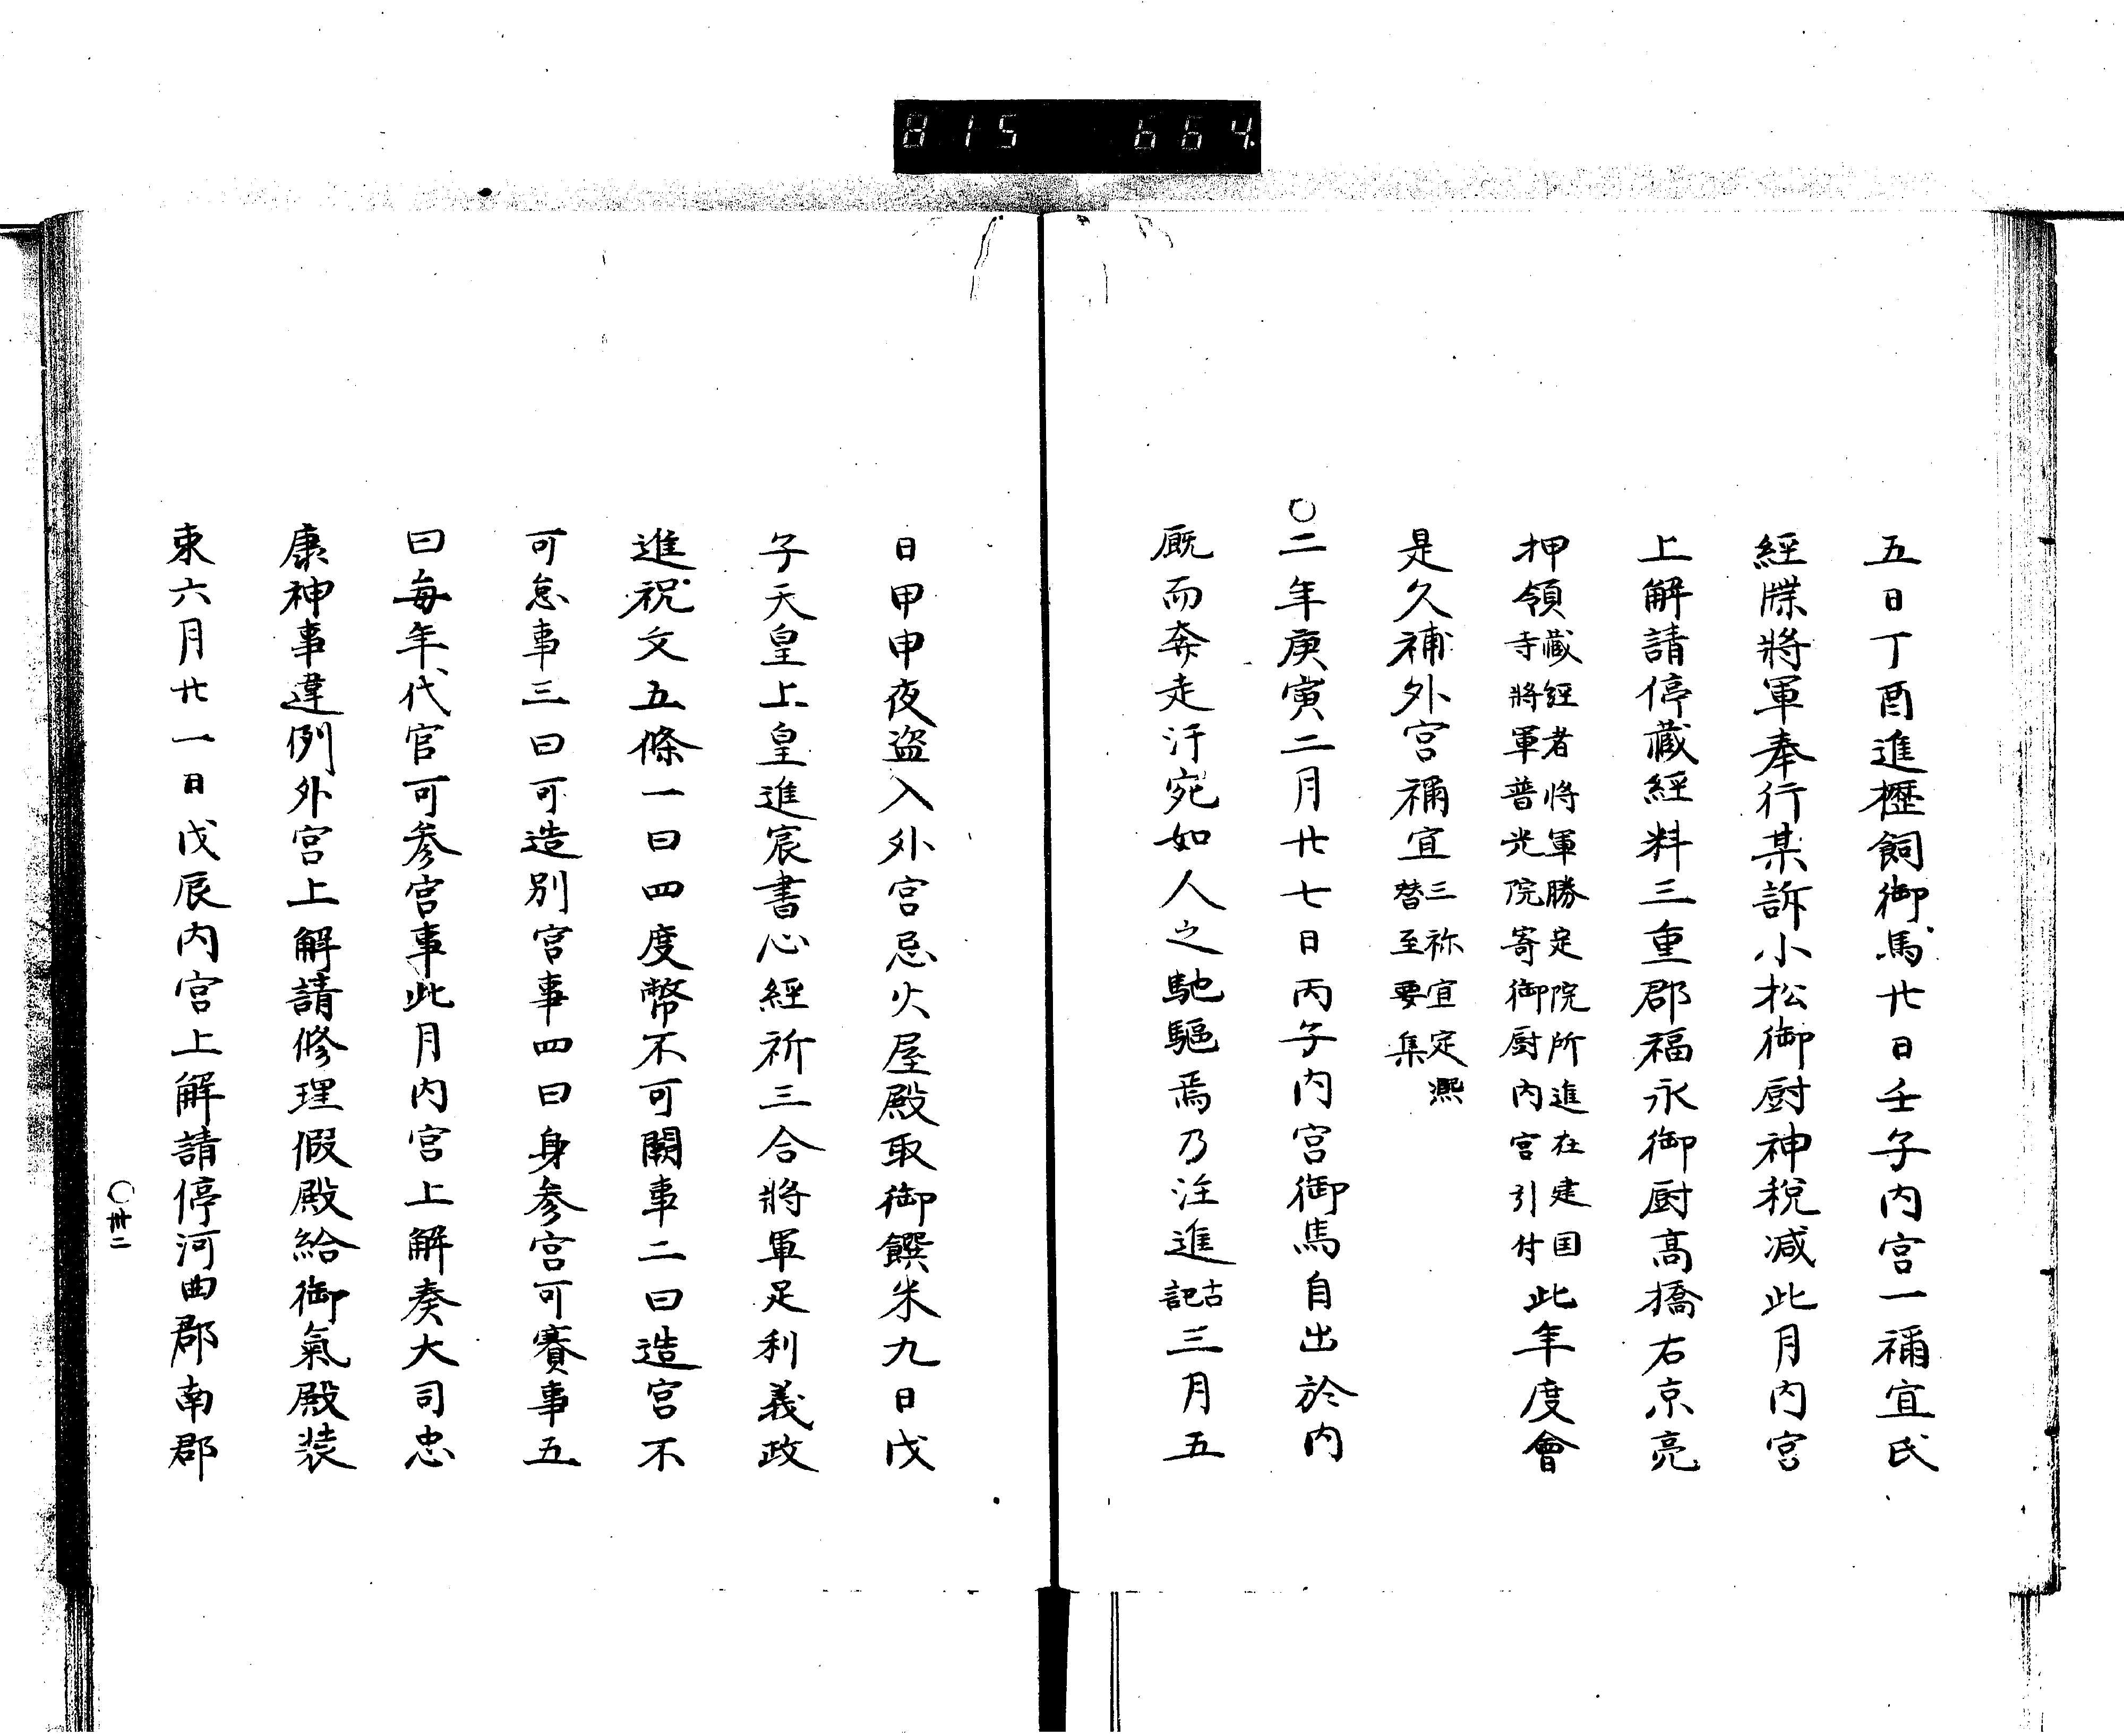 815 664
五日丁酉進櫪飼御馬廿日壬子内宮一禰宜氏
經牒將軍奉行某訴小松御厨神稅减此月内宮
上解請停藏經料三重郡福永御厨髙橋右京亮
押領藏經者將軍勝定院所進在建国寺將軍普光院寄御厨内宮引付此年度會
是久補外宮禰宜三祢宜定凞替至要集
〇二年庚寅二月廿七日丙子内宮御馬自出於内
厩而奔走汗宛如人之馳驅焉乃注進古記三月五
日甲申夜盗入外宮忌火屋殿取御饌米九日戊
子天皇上皇進宸書心經祈三合將軍足利義政
進祝文五條一曰四度幣不可闕事二曰造宮不
可怠事三曰可造別宮事四曰身参宮可賽事五
曰每年代官可参宮事此月内宮上解奏大司忠
康神事違例外宮上解請修理假殿給御氣殿装
束六月廿一日戊辰内宮上解請停河曲郡南郡
〇卌二